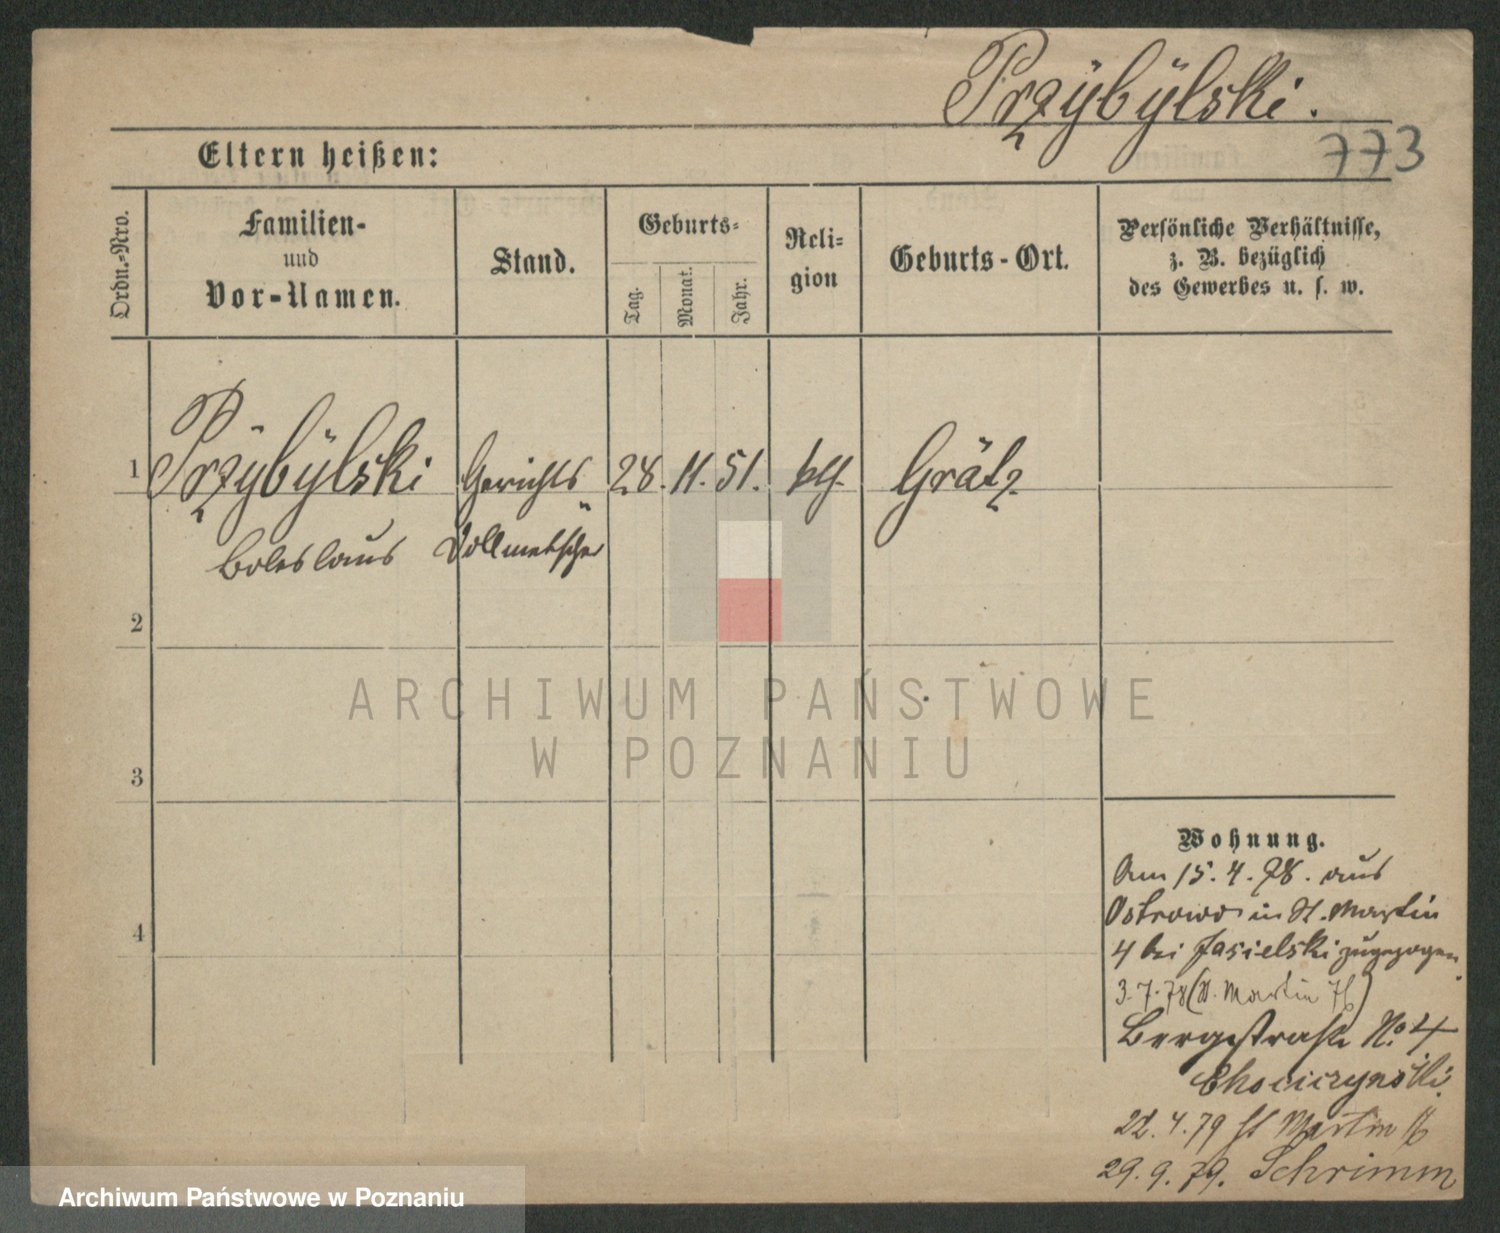 Przÿbÿlski.
773
Eltern heißen:
Ordn.-Nro.
Familien-
und
Vor-Namen.
Stand.
Geburts-
Tag.
Monat.
Jahr.
Reli-
gion
Geburts-Ort.
Persönliche Verhältnisse,
z. B. bezüglich
des Gewerbes u. s. w.
1 Przÿbÿlski Gerichts 28. 11. 51. Grätz
Boleslaus Dollmetscher
2
3
4
Wohnung.
Am 15.4.78. aus
Ostrowo in St. Martin
4 bei Jasielski zugezogen.
3.7.78 (St. Martin
Bergstraße No. 4
22.4.79 St Martin
29.9.79. Schrimm
ARCHIWUM PAŃSTWOWE
W POZNANIU
Archiwum Państwowe w Poznaniu